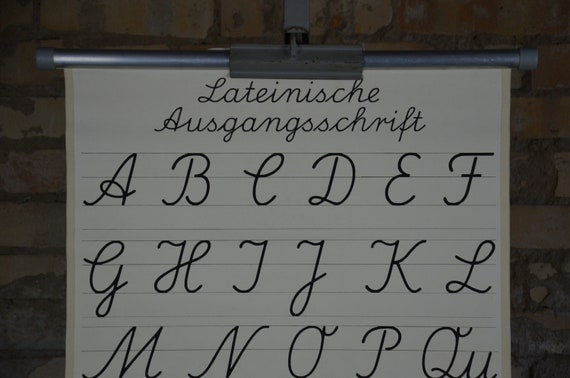 Lateinische
Ausgangsschrift
A B C D E F
G H I J K L
M N O P Qu